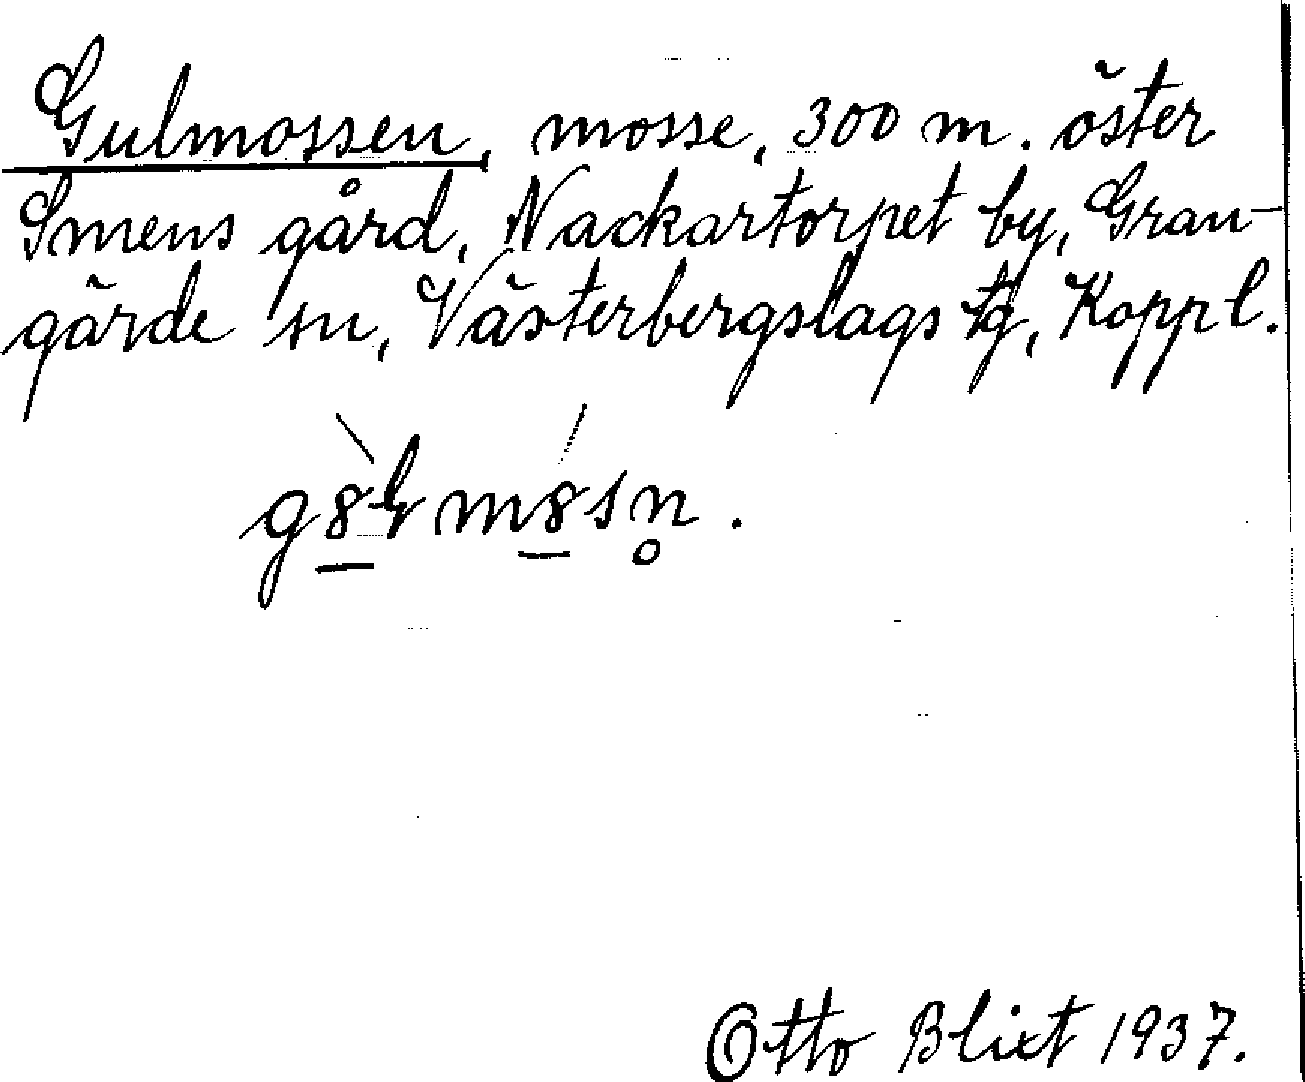 Gulmossen, mosse, 300 m. öster
Smens gård, Nackartorpet by, Gran-
gärde sn, Västerbergslags tg, Koppl.
Otto Blixt 1937.